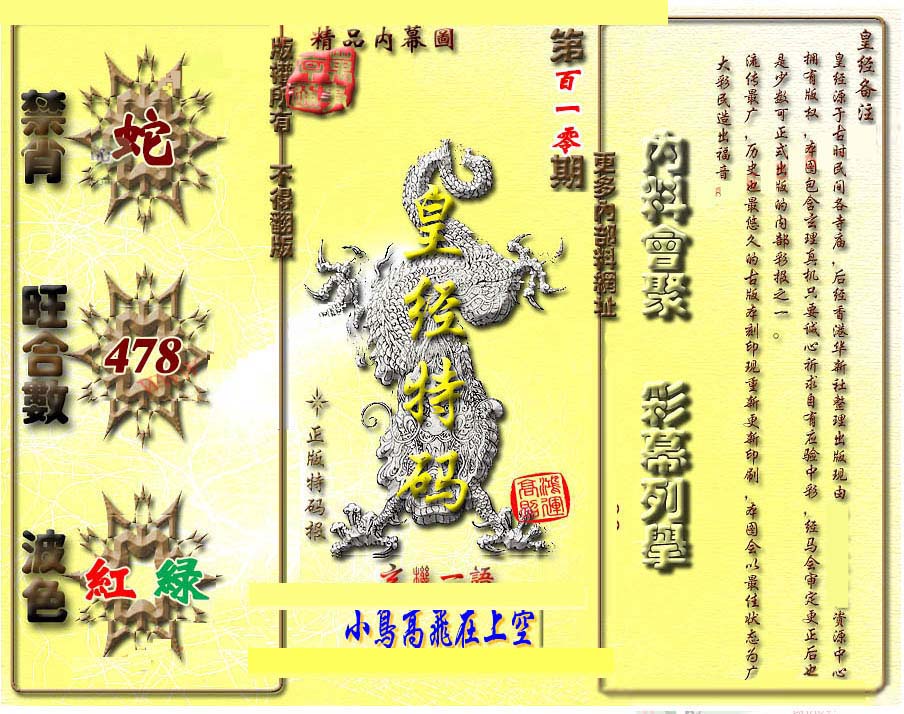 皇经备注
皇经源于古时民间各寺庙,后经香港华新社整理出版现由 资源中心
拥有版权,本图包含玄理真机只要诚心祈求自有应验中彩,经马会审定更正后也
是少数可正式出版的内部彩报之一。
流传最广,历史也最悠久的古版本刻印现重新更新印刷,本图会以最佳状态为广
大彩民造出福音
內料會聚 彩幕列擧
更多內部料網址
第百一零期
精品内幕圖
版權所有 不得翻版
皇经特码
正版特码报
鴻運高照
玄機一語
小鳥高飛在上空
禁肖
蛇
旺合數
478
波色
紅 綠